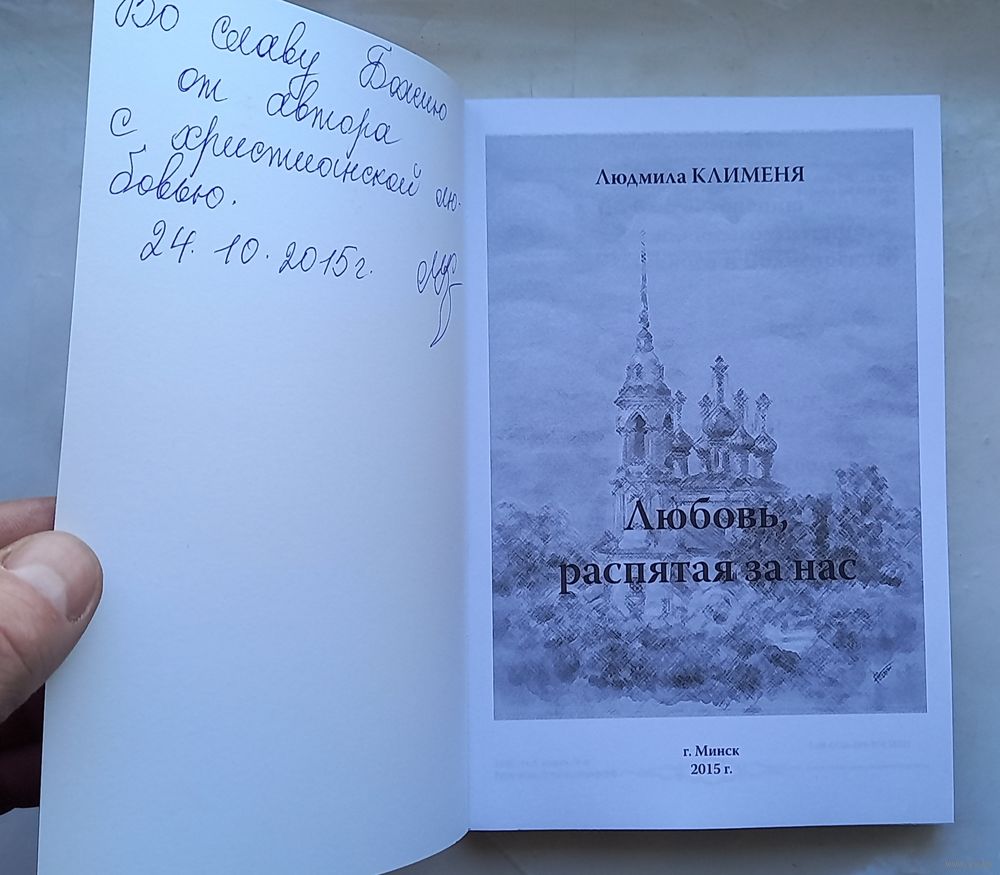 Во славу Божию
от автора
с христианской лю-
бовью.
24.10.2015г.
Людмила КЛИМЕНЯ
Любовь,
распятая за нас
г. Минск
2015 г.